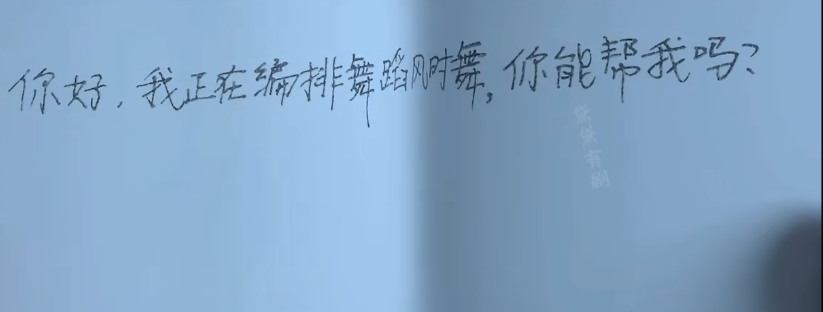 你好，我正在编排舞蹈风时舞，你能帮我吗？
有剧